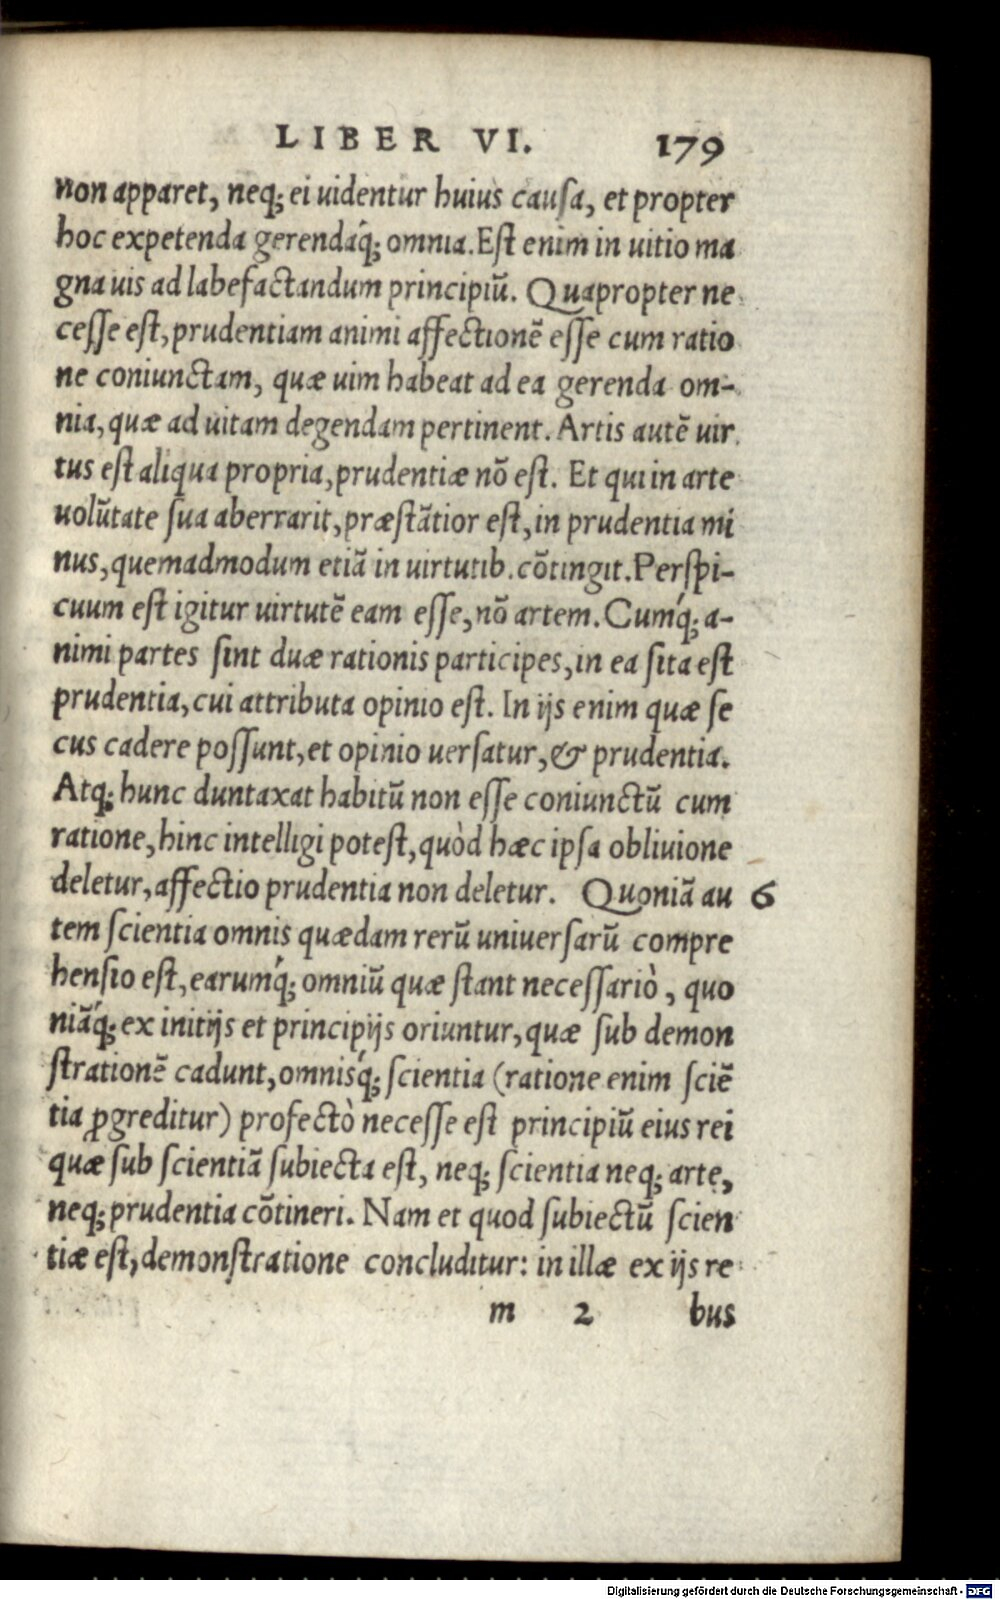 LIBER VI. 179
non apparet, neq; ei uidentur huius causa, et propter
hoc expetenda gerendáq; omnia. Est enim in uitio ma
gna uis ad labefactandum principiũ. Quapropter ne
cesse est, prudentiam animi affectionẽ esse cum ratio
ne coniunctam, quæ uim habeat ad ea gerenda om-
nia, quæ ad uitam degendam pertinent. Artis autẽ uir
tus est aliqua propria, prudentiæ nõ est. Et qui in arte
uolũtate sua aberrarit, præstãtior est, in prudentia mi
nus, quemadmodum etiã in uirtutib. cõtingit. Perspi-
cuum est igitur uirtutẽ eam esse, nõ artem. Cumq́; a-
nimi partes sint duæ rationis participes, in ea sita est
prudentia, cui attributa opinio est. In ijs enim quæ se
cus cadere possunt, et opinio uersatur, & prudentia.
Atq; hunc duntaxat habitũ non esse coniunctũ cum
ratione, hinc intelligi potest, quòd hæc ipsa obliuione
deletur, affectio prudentia non deletur. Quoniã au 6
tem scientia omnis quædam rerũ uniuersarũ compre
hensio est, earumq́; omniũ quæ stant necessariò, quo
niãq́; ex initijs et principijs oriuntur, quæ sub demon
strationẽ cadunt, omnisq́; scientia (ratione enim sciẽ
tia ꝓgreditur) profectò necesse est principiũ eius rei
quæ sub scientiã subiecta est, neq; scientia neq; arte,
neq; prudentia cõtineri. Nam et quod subiectũ scien
tiæ est, demonstratione concluditur: in illæ ex ijs re
m 2 bus
Digitalisierung gefördert durch die Deutsche Forschungsgemeinschaft - DFG